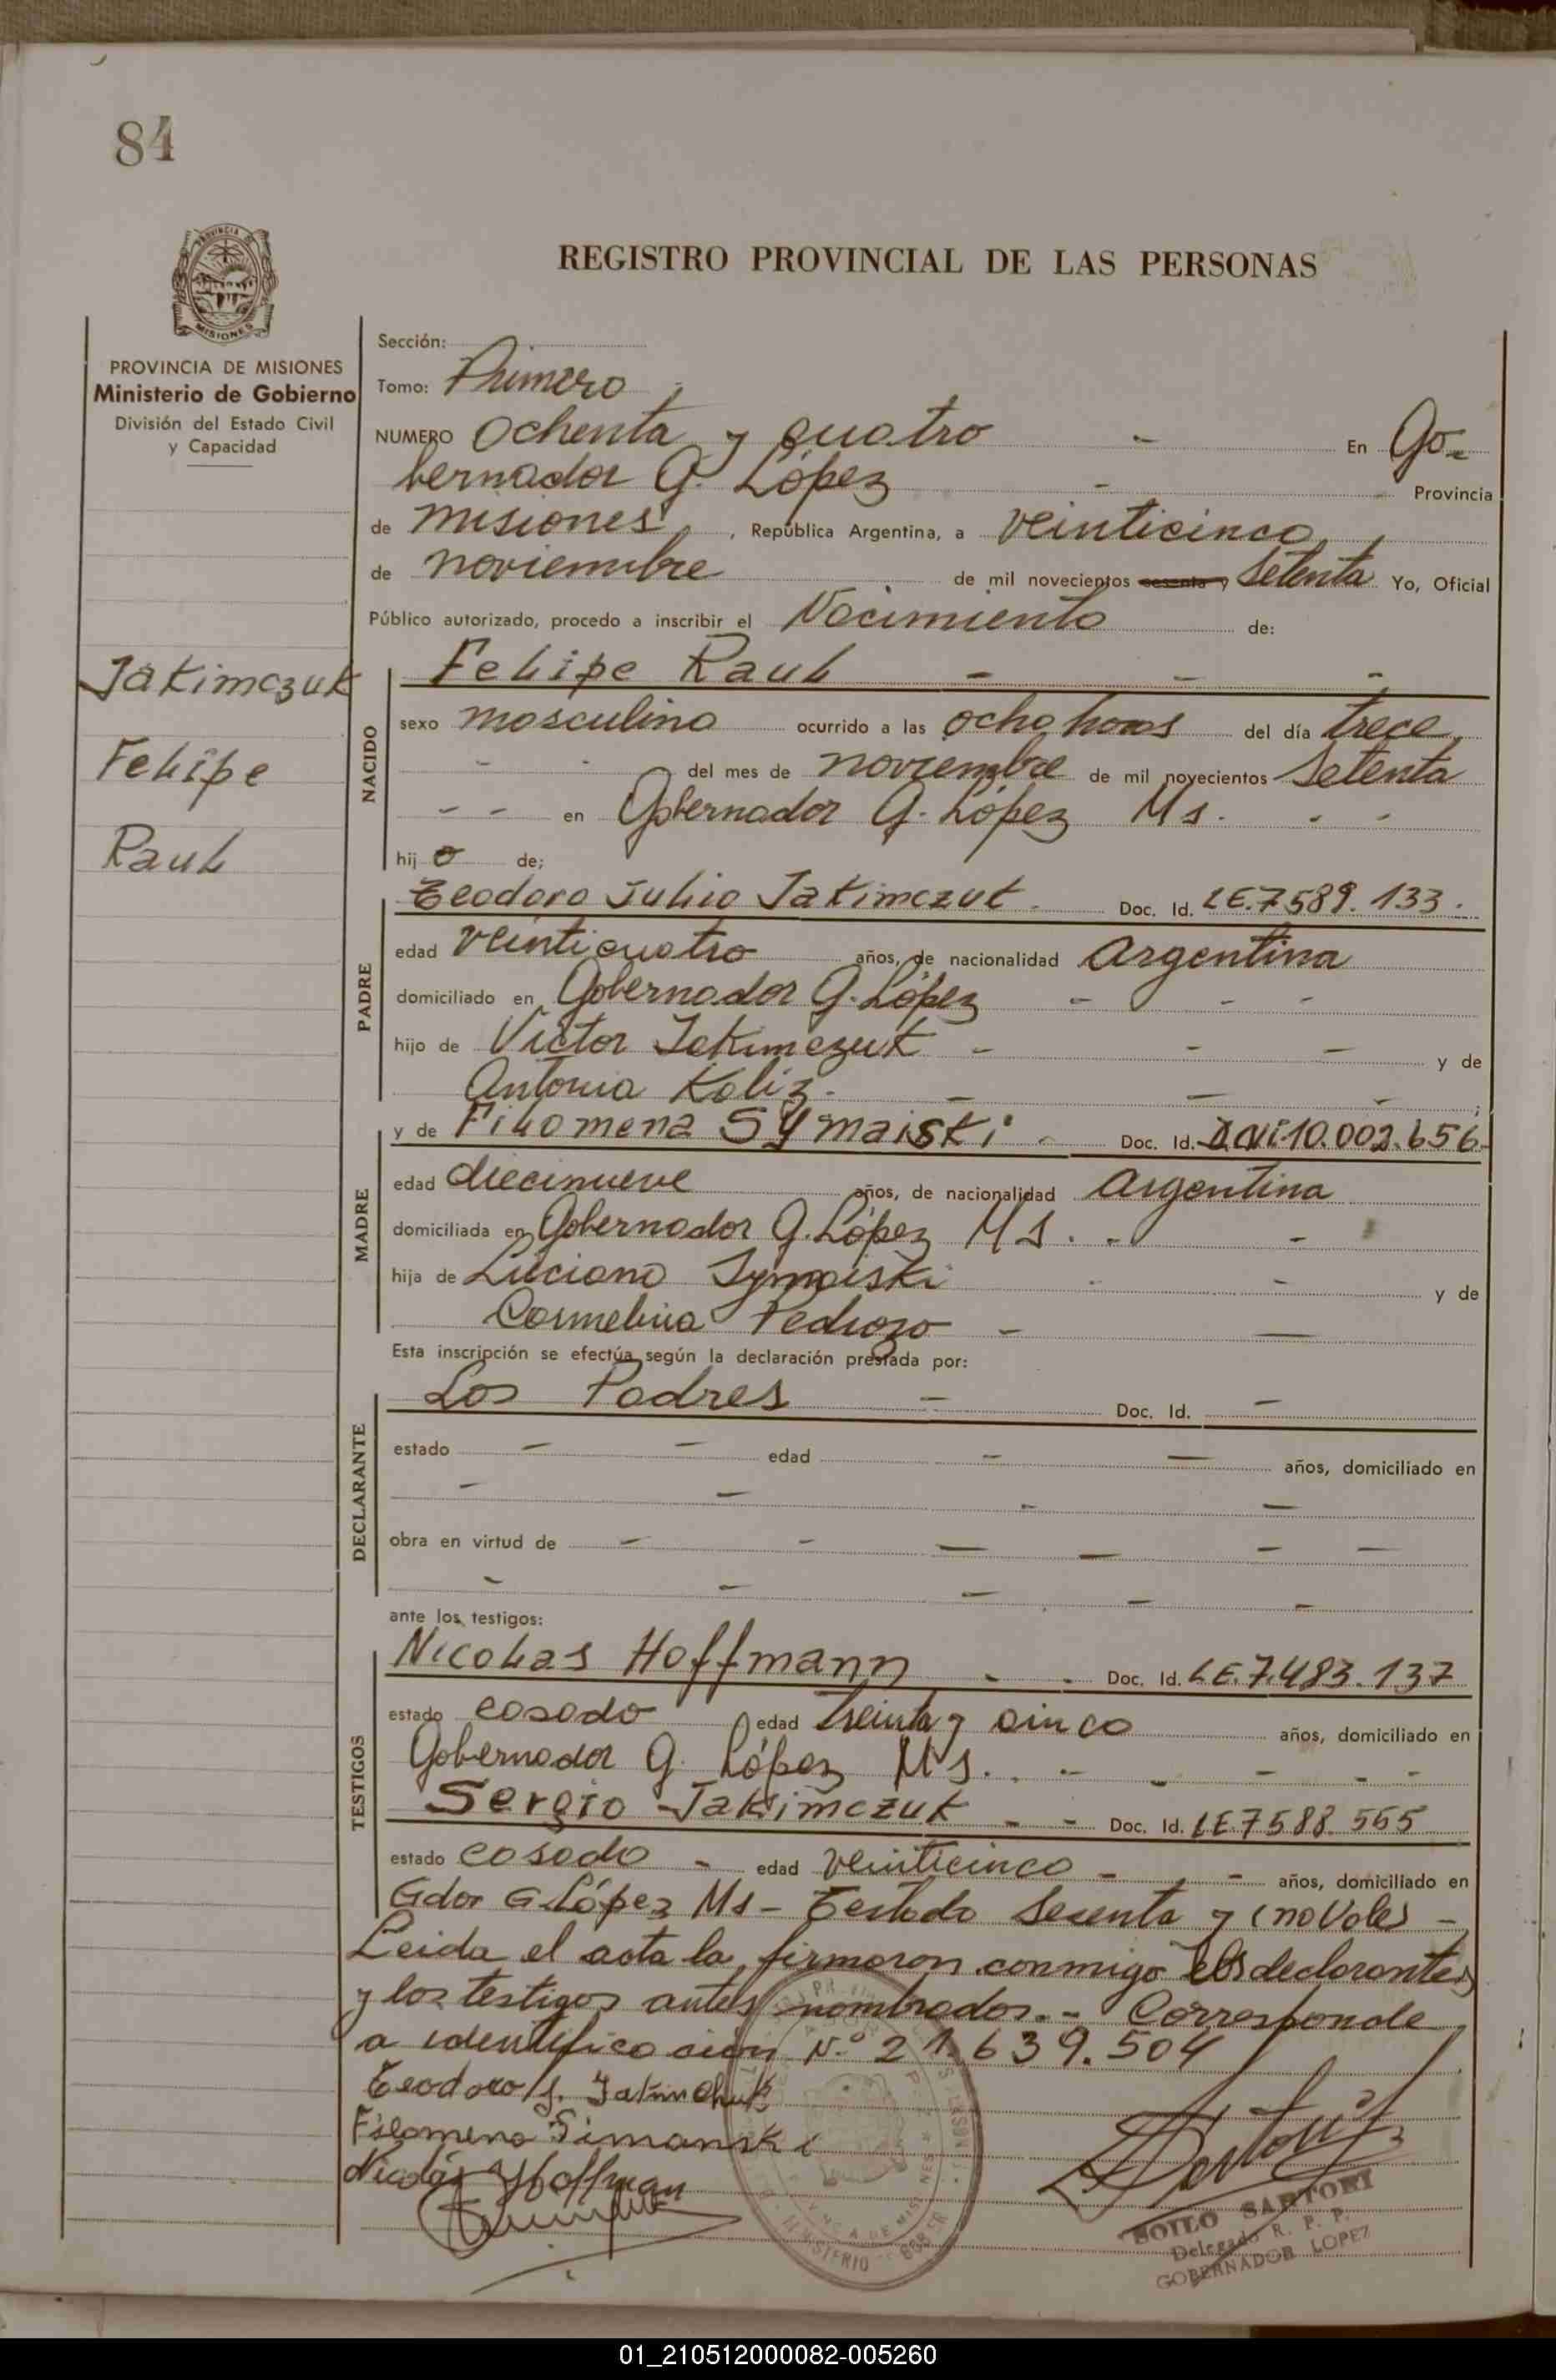 84
REGISTRO PROVINCIAL DE LAS PERSONAS
MISIONES
PROVINCIA DE MISIONES
Ministerio de Gobierno
División del Estado Civil
y Capacidad
Sección:
Tomo: Primero
NUMERO Ochenta y cuatro - En Go-
bernador G. López - Provincia
de Misiones, República Argentina, a veinticinco
de noviembre de mil novecientos sesenta y Setenta Yo, Oficial
Público autorizado, procedo a inscribir el Nacimiento de:
Jakimczuk
Felipe
Raul
NACIDO
Felipe Raul - - -
sexo masculino ocurrido a las ocho horas del día trece
- - del mes de noviembre de mil novecientos Setenta
- - en Gobernador G. López Ms. - -
hij o de:
PADRE
Teodoro Julio Jakimczuk - Doc. Id. LE.7589.133.
edad veinticuatro años, de nacionalidad argentina
domiciliado en Gobernador G. López - - -
hijo de Victor Jakimczuk - - - y de
Antonia Koliz - - - -
MADRE
y de Filomena Symaiski - Doc. Id. DNI 10.002.656-
edad diecinueve años, de nacionalidad argentina
domiciliada en Gobernador G. López Ms. - -
hija de Luciano Symaiski - - y de
Carmelina Pedrozo - -
Esta inscripción se efectúa según la declaración prestada por:
DECLARANTE
Los Padres - Doc. Id. -
estado - - edad - - años, domiciliado en
- - - -
obra en virtud de - - - - - -
- - - - -
ante los testigos:
TESTIGOS
Nicolas Hoffmann - - Doc. Id. LE.7.483.137
estado casado edad treinta y cinco años, domiciliado en
Gobernador G. López Ms. - - - - -
Sergio Jakimczuk - - Doc. Id. LE.7588.555
estado casado - edad veinticinco - - años, domiciliado en
Gdor G López Ms - Testado sesenta y (no vale) -
Leida el acta la firmaron conmigo los declarantes
y los testigos antes nombrados.- Corresponde
a identificacion Nº 21.639.504
Teodoro J. Jakimchuk
Filomena Simanski
Nicolás Hoffman
ZOILO SARTORI
Delegado R. P. P.
GOBERNADOR LOPEZ
01_210512000082-005260